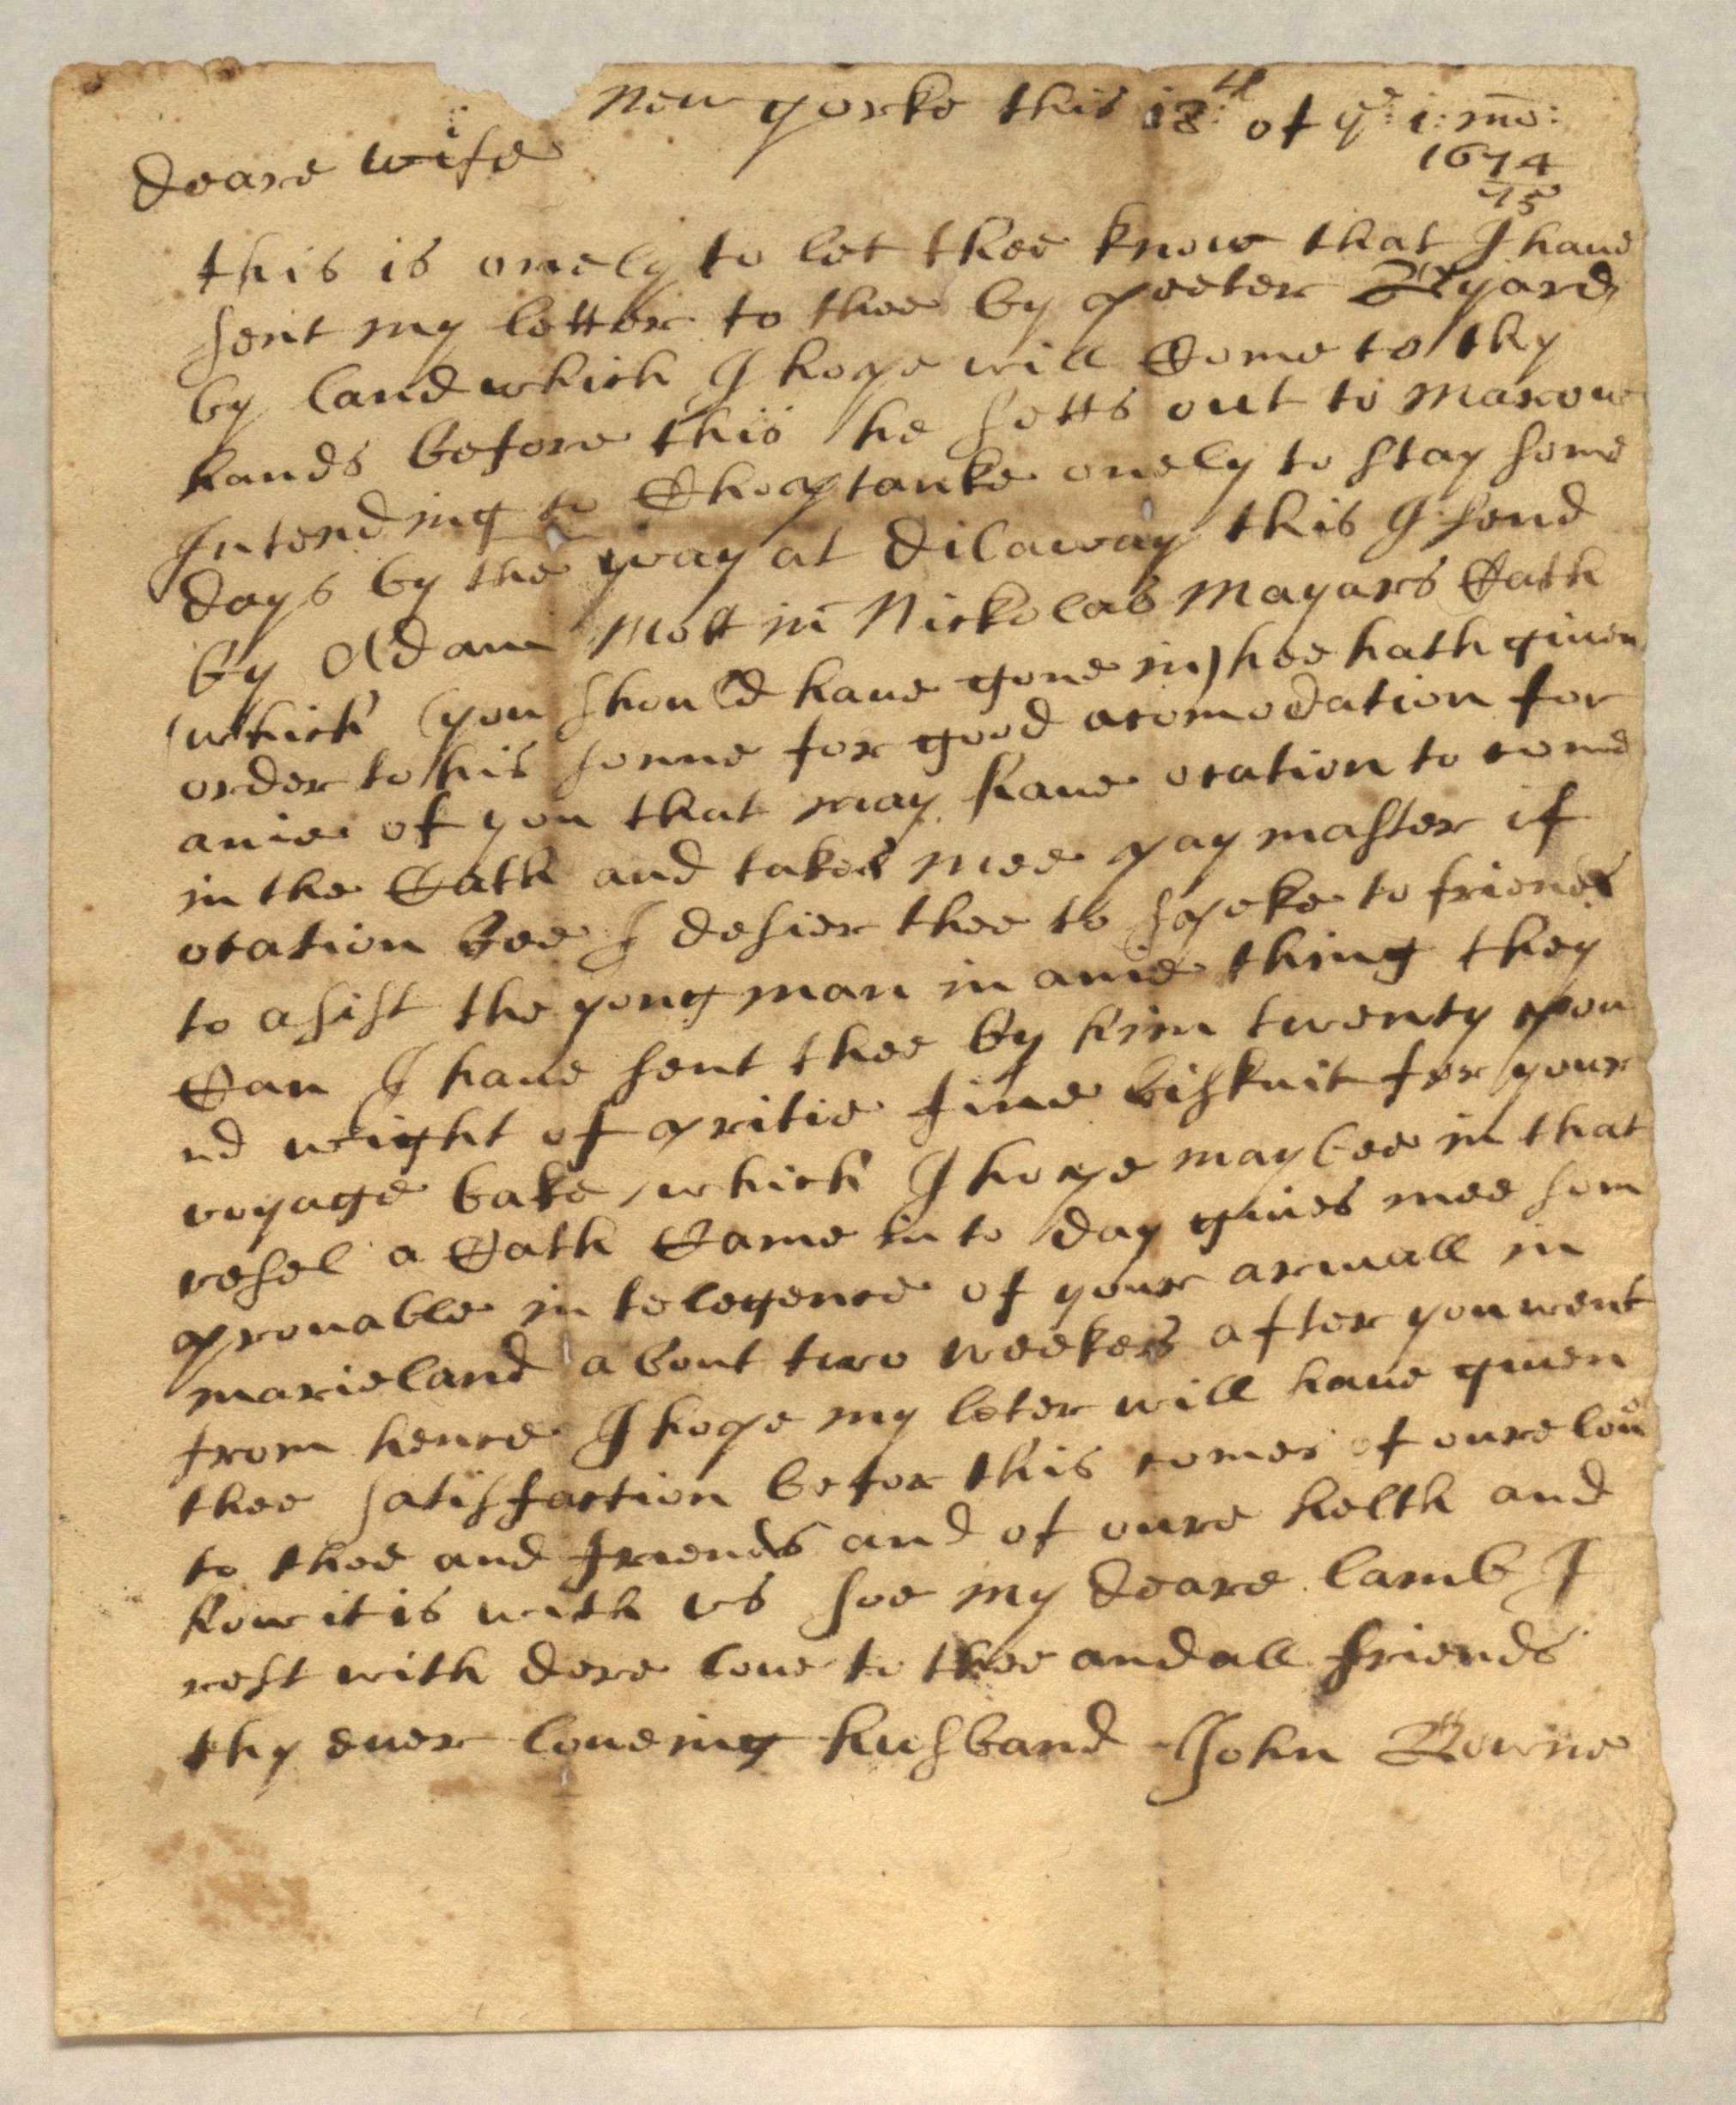 New yorke this 18th of ye: 1: mo:
deare wife
1674
75
this is onely to let thee know that I haue
sent my letter to thee by peeter Byard
by land which I hope will Come to thy
hands before this he setts out to morow
Intending to Choptanke onely to stay some
days by the way at dilaway this I send
by Adam Mott in Nickolas Mayars Cath
which (you should haue gone in) hee hath giuen
order to his sonne for good acomodation for
anie of you that may haue ocation to come
in the Cath and takes mee pay master if
ocation bee I desier thee to speke to friends
to asist the yong man in anie thing they
Can I haue sent thee by him twenty pou
nd weight of pritie fine biskuit for your
voyage bake which I hope may bee in that
vesel a Cath Came in to day giues mee som
prouable intelegence of your ariuall in
marieland about two weekes after you went
from hence I hope my leter will haue giuen
thee satisfaction befor this comes of oure loue
to thee and friends and of oure helth and
how it is with vs soe my deare lamb I
rest with dere loue to thee and all friends
thy euer loueing husband John Bowne